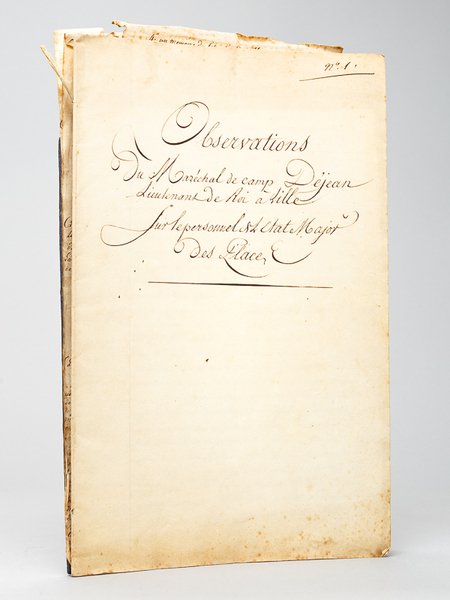 N°. 1.
Observations
Du Maréchal de camp Déjean
Lieutenant de Roi à Lille
Sur le personnel de L'Etat Major
Des Places